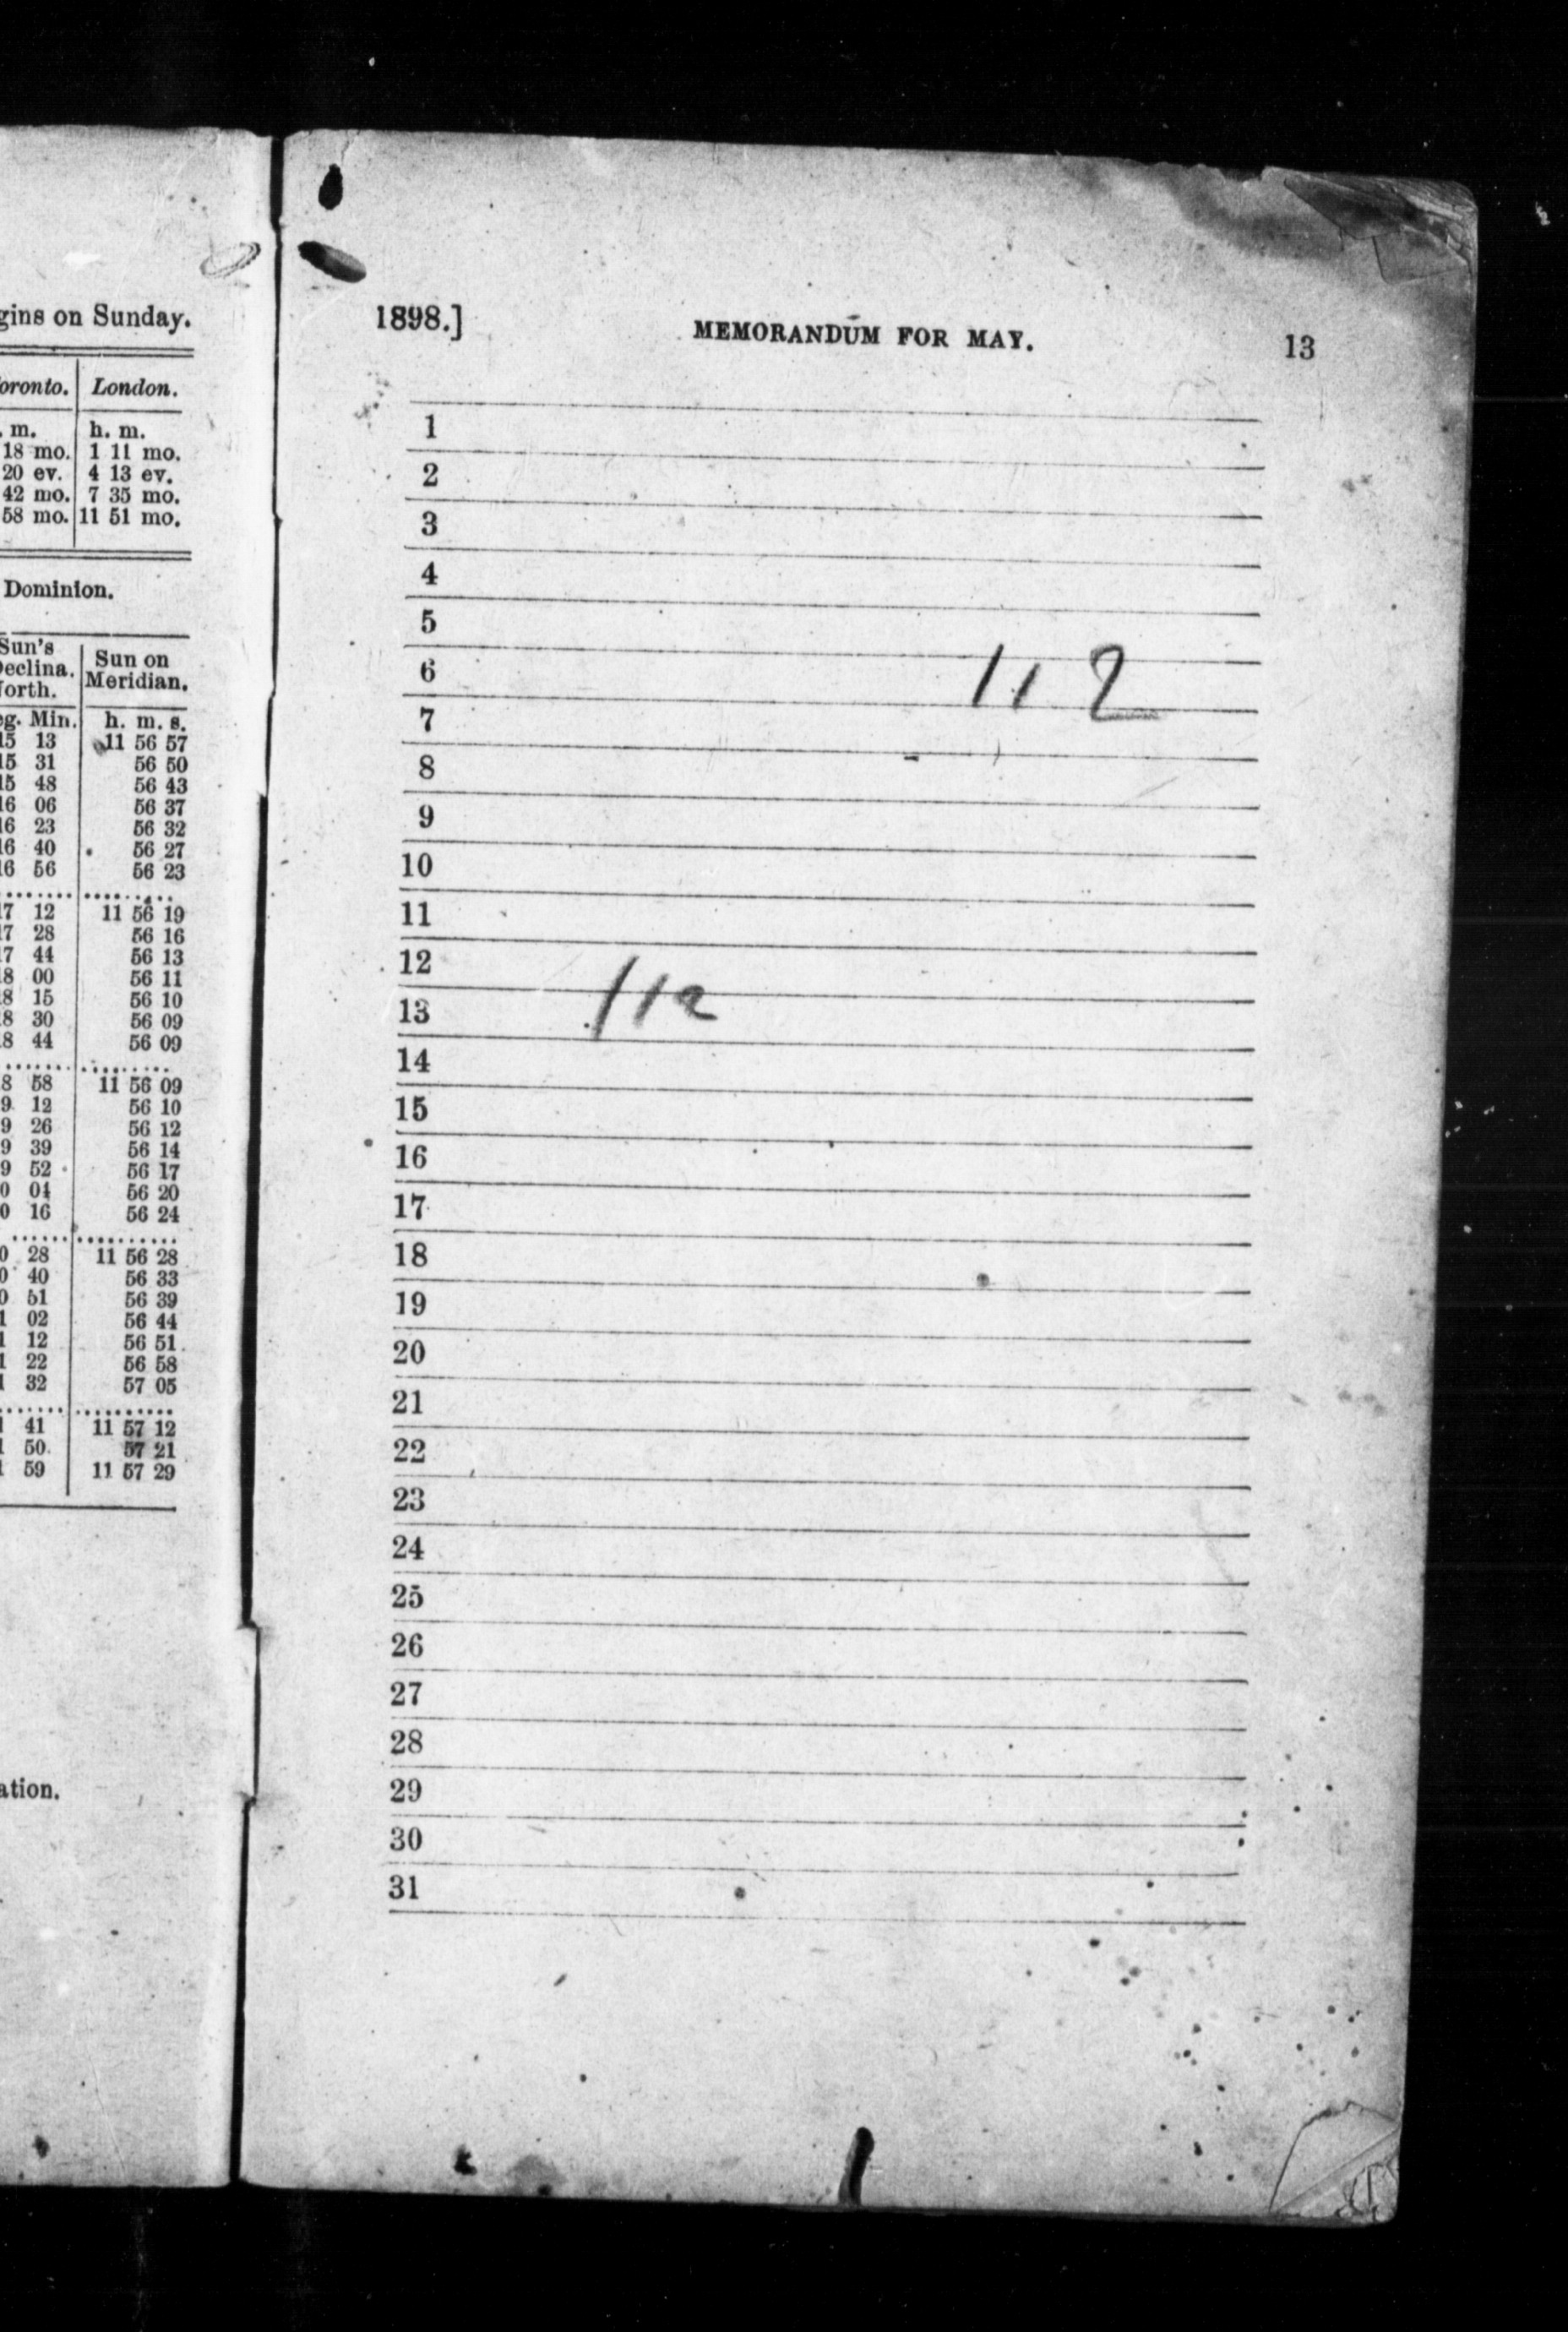 gins on Sunday.
oronto. London.
. m. h. m.
18 mo. 1 11 mo.
20 ev. 4 13 ev.
42 mo. 7 35 mo.
58 mo. 11 51 mo.
Dominion.
Sun's
Declina.
North. Sun on
Meridian.
eg. Min. h. m. s.
15 13 11 56 57
15 31 56 50
15 48 56 43
16 06 56 37
16 23 56 32
16 40 56 27
16 56 56 23
17 12 11 56 19
17 28 56 16
17 44 56 13
18 00 56 11
18 15 56 10
18 30 56 09
18 44 56 09
8 58 11 56 09
9 12 56 10
9 26 56 12
9 39 56 14
9 52 56 17
0 04 56 20
0 16 56 24
0 28 11 56 28
0 40 56 33
0 51 56 39
1 02 56 44
1 12 56 51
1 22 56 58
1 32 57 05
1 41 11 57 12
1 50 57 21
1 59 11 57 29
ation.
1898.] MEMORANDUM FOR MAY. 13
1
2
3
4
5
6 112
7
8
9
10
11
12
13 112
14
15
16
17
18
19
20
21
22
23
24
25
26
27
28
29
30
31